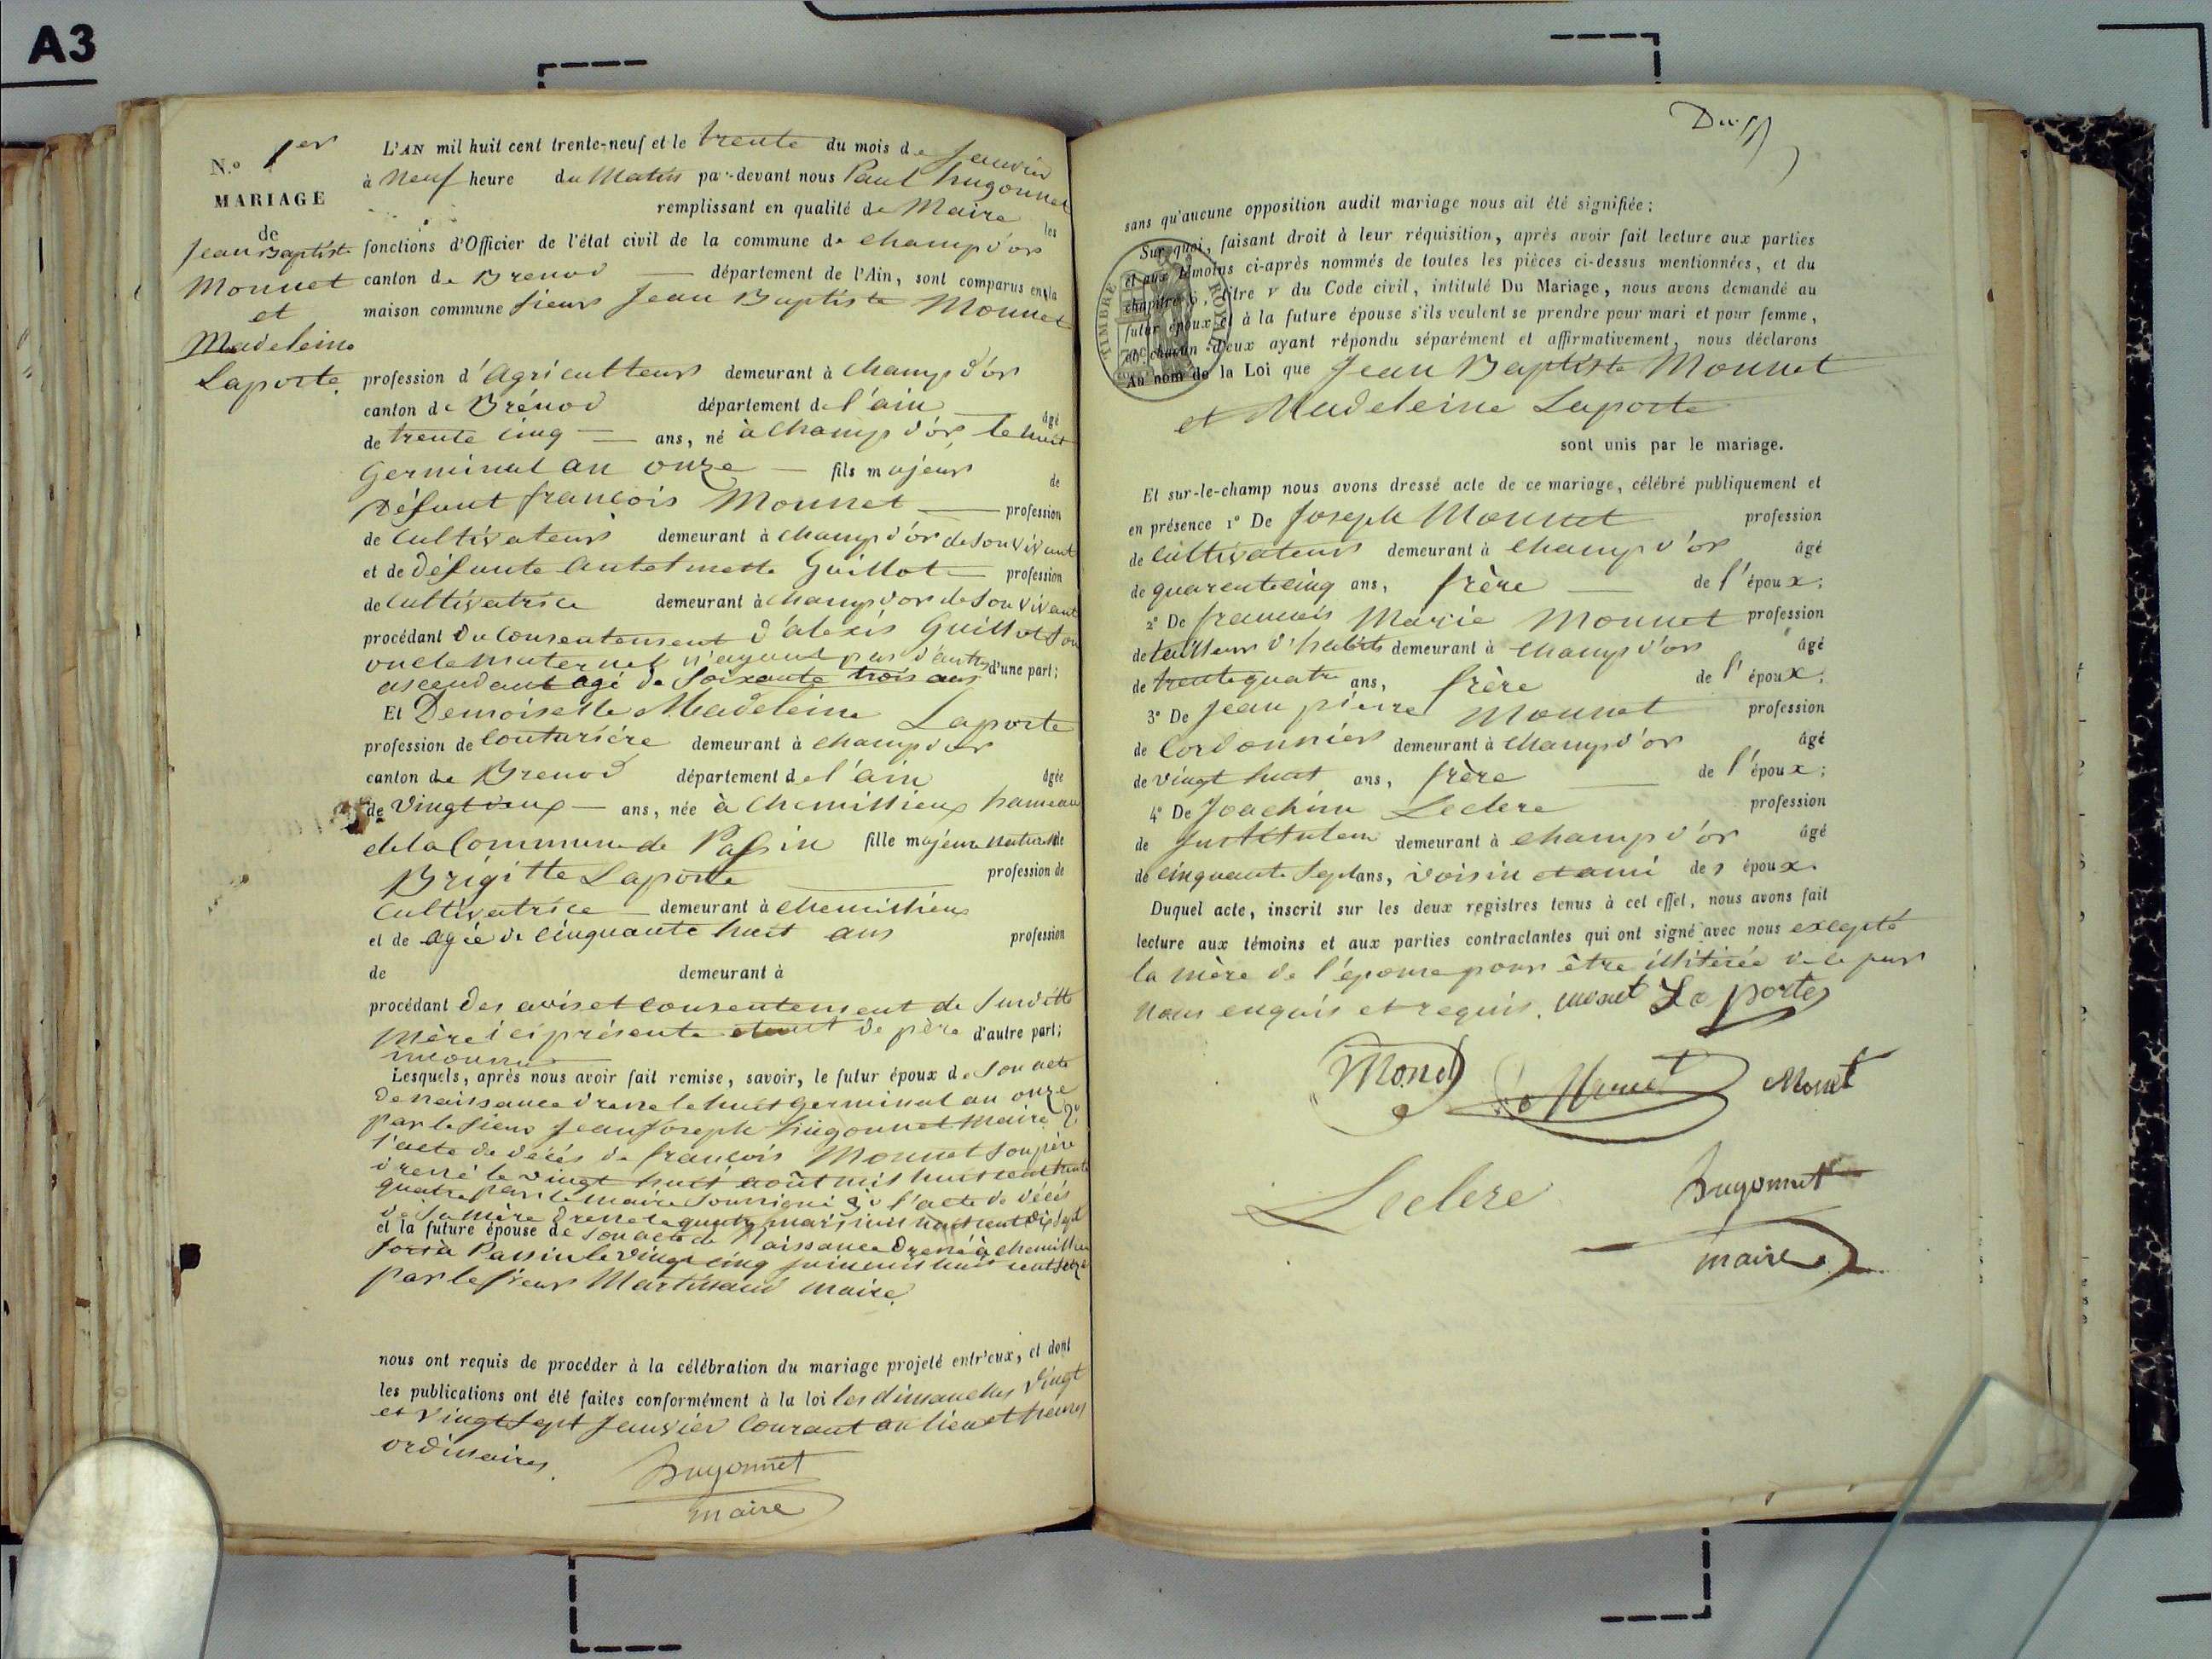 A3
N.º 1er
MARIAGE
de
Jean Baptiste
Monnet
et
Madeleine
Laporte.
L'AN mil huit cent trente-neuf et le trente du mois de Janvier
à neuf heure du Matin par-devant nous Paul hugonnet
remplissant en qualité de Maire les
fonctions d'Officier de l'état civil de la commune de champd'or
canton de Brenod département de l'Ain, sont comparus en la
maison commune sieur Jean Baptiste Monnet
profession d'agriculteur demeurant à champd'or
canton de Brénod département de l'ain âgé
de trente cinq ans, né à champd'or, le huit
Germinal an onze fils majeur de
Défunt françois Monnet profession
de cultivateur demeurant à champd'or de son vivant
et de défunte Antelmette Guillot profession
de cultivatrice demeurant à champd'or de son vivant
procédant du consentement d'alexis Guillot son
oncle maternel n'ayant pas d'autre d'une part;
ascendant agé de soixante trois ans
Et Demoiselle Madeleine Laporte
profession de couturiére demeurant à champd'or
canton de Brenod département de l'ain âgée
de vingt deux ans, née à chemillieux hameau
de la Commune de Passin fille majeure naturelle de
Brigitte Laporte profession de
cultivatrice demeurant à chemillieux
et de agée de cinquante huit ans profession
de demeurant à
procédant des avis et consentement de sur ditte
mère ici présente étant de père d'autre part;
inconnu
Lesquels, après nous avoir fait remise, savoir, le futur époux de son acte
de naissance dressé le huit germinal an onze
par le sieur Jean Joseph hugonnet maire 2º
l'acte de décés de françois Monnet son père
dressé le vingt huit août mil huit cent trente
quatre par le maire soussigné 3º l'acte de décés
de sa mère dressé le quatre mars mil huit cent dix sept
et la future épouse de son acte de Naissance dressé à chemillieu
Passin le vingt cinq juin mil huit cent seize
par le sieur Martinaud maire.
nous ont requis de procéder à la célébration du mariage projeté entr'eux, et dont
les publications ont été faites conformément à la loi les dimanches vingt
et vingt sept Janvier courant au lieu et heures
ordinaires.
hugonnet
maire
sans qu'aucune opposition audit mariage nous ait été signifiée;
Sur quoi, faisant droit à leur réquisition, après avoir fait lecture aux parties
et aux témoins ci-après nommés de toutes les pièces ci-dessus mentionnées, et du
chapitre 6, titre v du Code civil, intitulé Du Mariage, nous avons demandé au
futur époux et à la future épouse s'ils veulent se prendre pour mari et pour femme,
et chacun d'eux ayant répondu séparément et affirmativement, nous déclarons
Au nom de la Loi que Jean Baptiste Monnet
et Madeleine Laporte
sont unis par le mariage.
TIMBRE ROYAL
Et sur-le-champ nous avons dressé acte de ce mariage, célébré publiquement et
en présence 1º De Joseph Monnet profession
de cultivateur demeurant à champd'or âgé
de quarente cinq ans, frère de l'époux;
2º De francois Marie Monnet profession
de tailleur d'habits demeurant à champd'or âgé
de trente quatre ans, frère de l'époux;
3º De Jean pierre Monnet profession
de Cordonnier demeurant à champd'or âgé
de vingt huit ans, frère de l'époux;
4º De Joachim Leclere profession
de Instituteur demeurant à champd'or âgé
de cinquante sept ans, voisin et ami des époux.
Duquel acte, inscrit sur les deux registres tenus à cet effet, nous avons fait
lecture aux témoins et aux parties contractantes qui ont signé avec nous excepté
la mère de l'épouse pour être illitérée de le par
nous enquis et requis. monet Laporte
Monet Monet Monet
Leclere hugonnet
maire